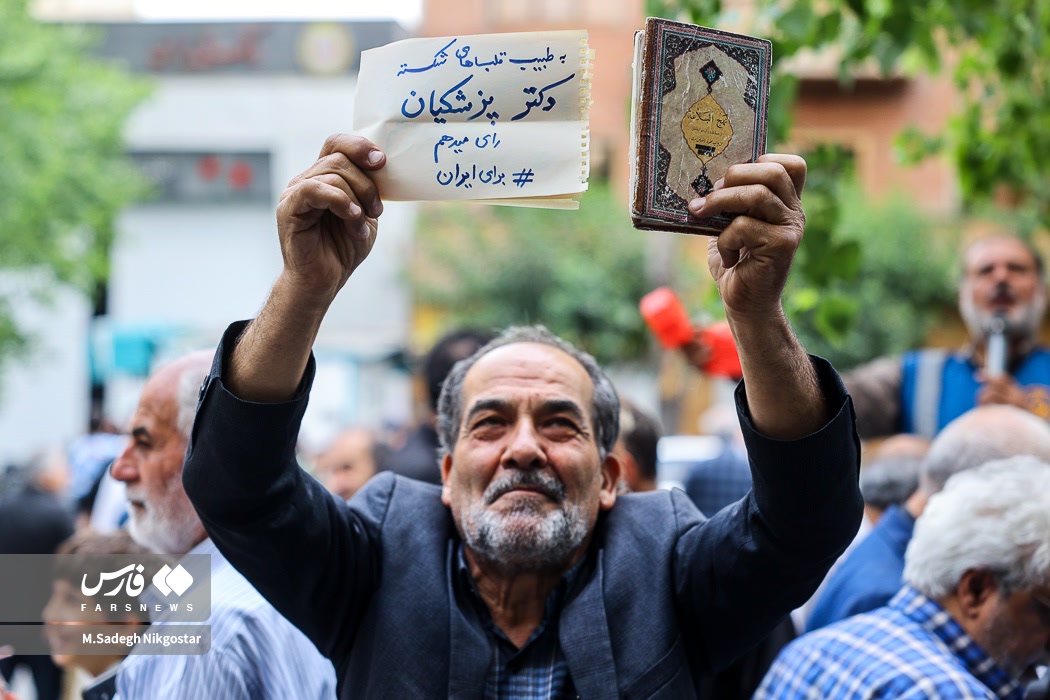 به طبیب قلب‌های شکسته
دکتر پزشکیان
رای میدهم
# برای ایران
نهج البلاغه
فارس
FARSNEWS
M.Sadegh Nikgostar